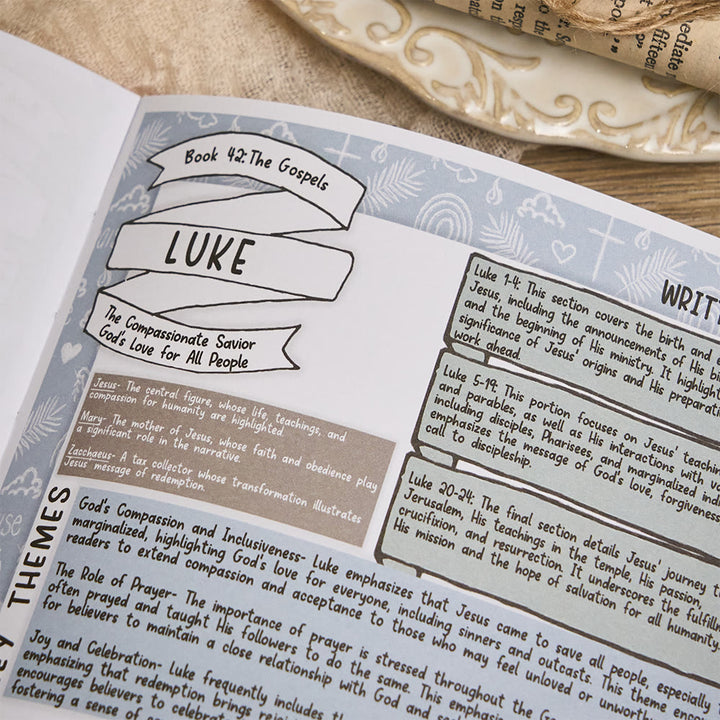 mediate
respo
fifteen
Book 42: The Gospels
LUKE
The Compassionate Savior
God's Love for All People
WRIT
Jesus- The central figure, whose life, teachings, and
compassion for humanity are highlighted.
Mary- The mother of Jesus, whose faith and obedience play
a significant role in the narrative.
Zacchaeus- A tax collector whose transformation illustrates
Jesus message of redemption.
Luke 1-4: This section covers the birth and
Jesus, including the announcements of His bi
and the beginning of His ministry. It highlight
significance of Jesus' origins and His preparati
work ahead.
Luke 5-19: This portion focuses on Jesus' teachi
and parables, as well as His interactions with v
including disciples, Pharisees, and marginalized indi
emphasizes the message of God's love, forgiveness
call to discipleship.
Luke 20-24: The final section details Jesus' journey t
Jerusalem, His teachings in the temple, His passion,
crucifixion, and resurrection. It underscores the fulfill
His mission and the hope of salvation for all humanity
Y THEMES
God's Compassion and Inclusiveness- Luke emphasizes that Jesus came to save all people, especially
marginalized, highlighting God's love for everyone, including sinners and outcasts. This theme enco
readers to extend compassion and acceptance to those who may feel unloved or unwort
The Role of Prayer- The importance of prayer is stressed throughout the
often prayed and taught His followers to do the same. This emphasi
for believers to maintain a close relationship with God and
Joy and Celebration- Luke frequently includes
emphasizing that redemption brings
encourages believers to celebrat
fostering a sense of